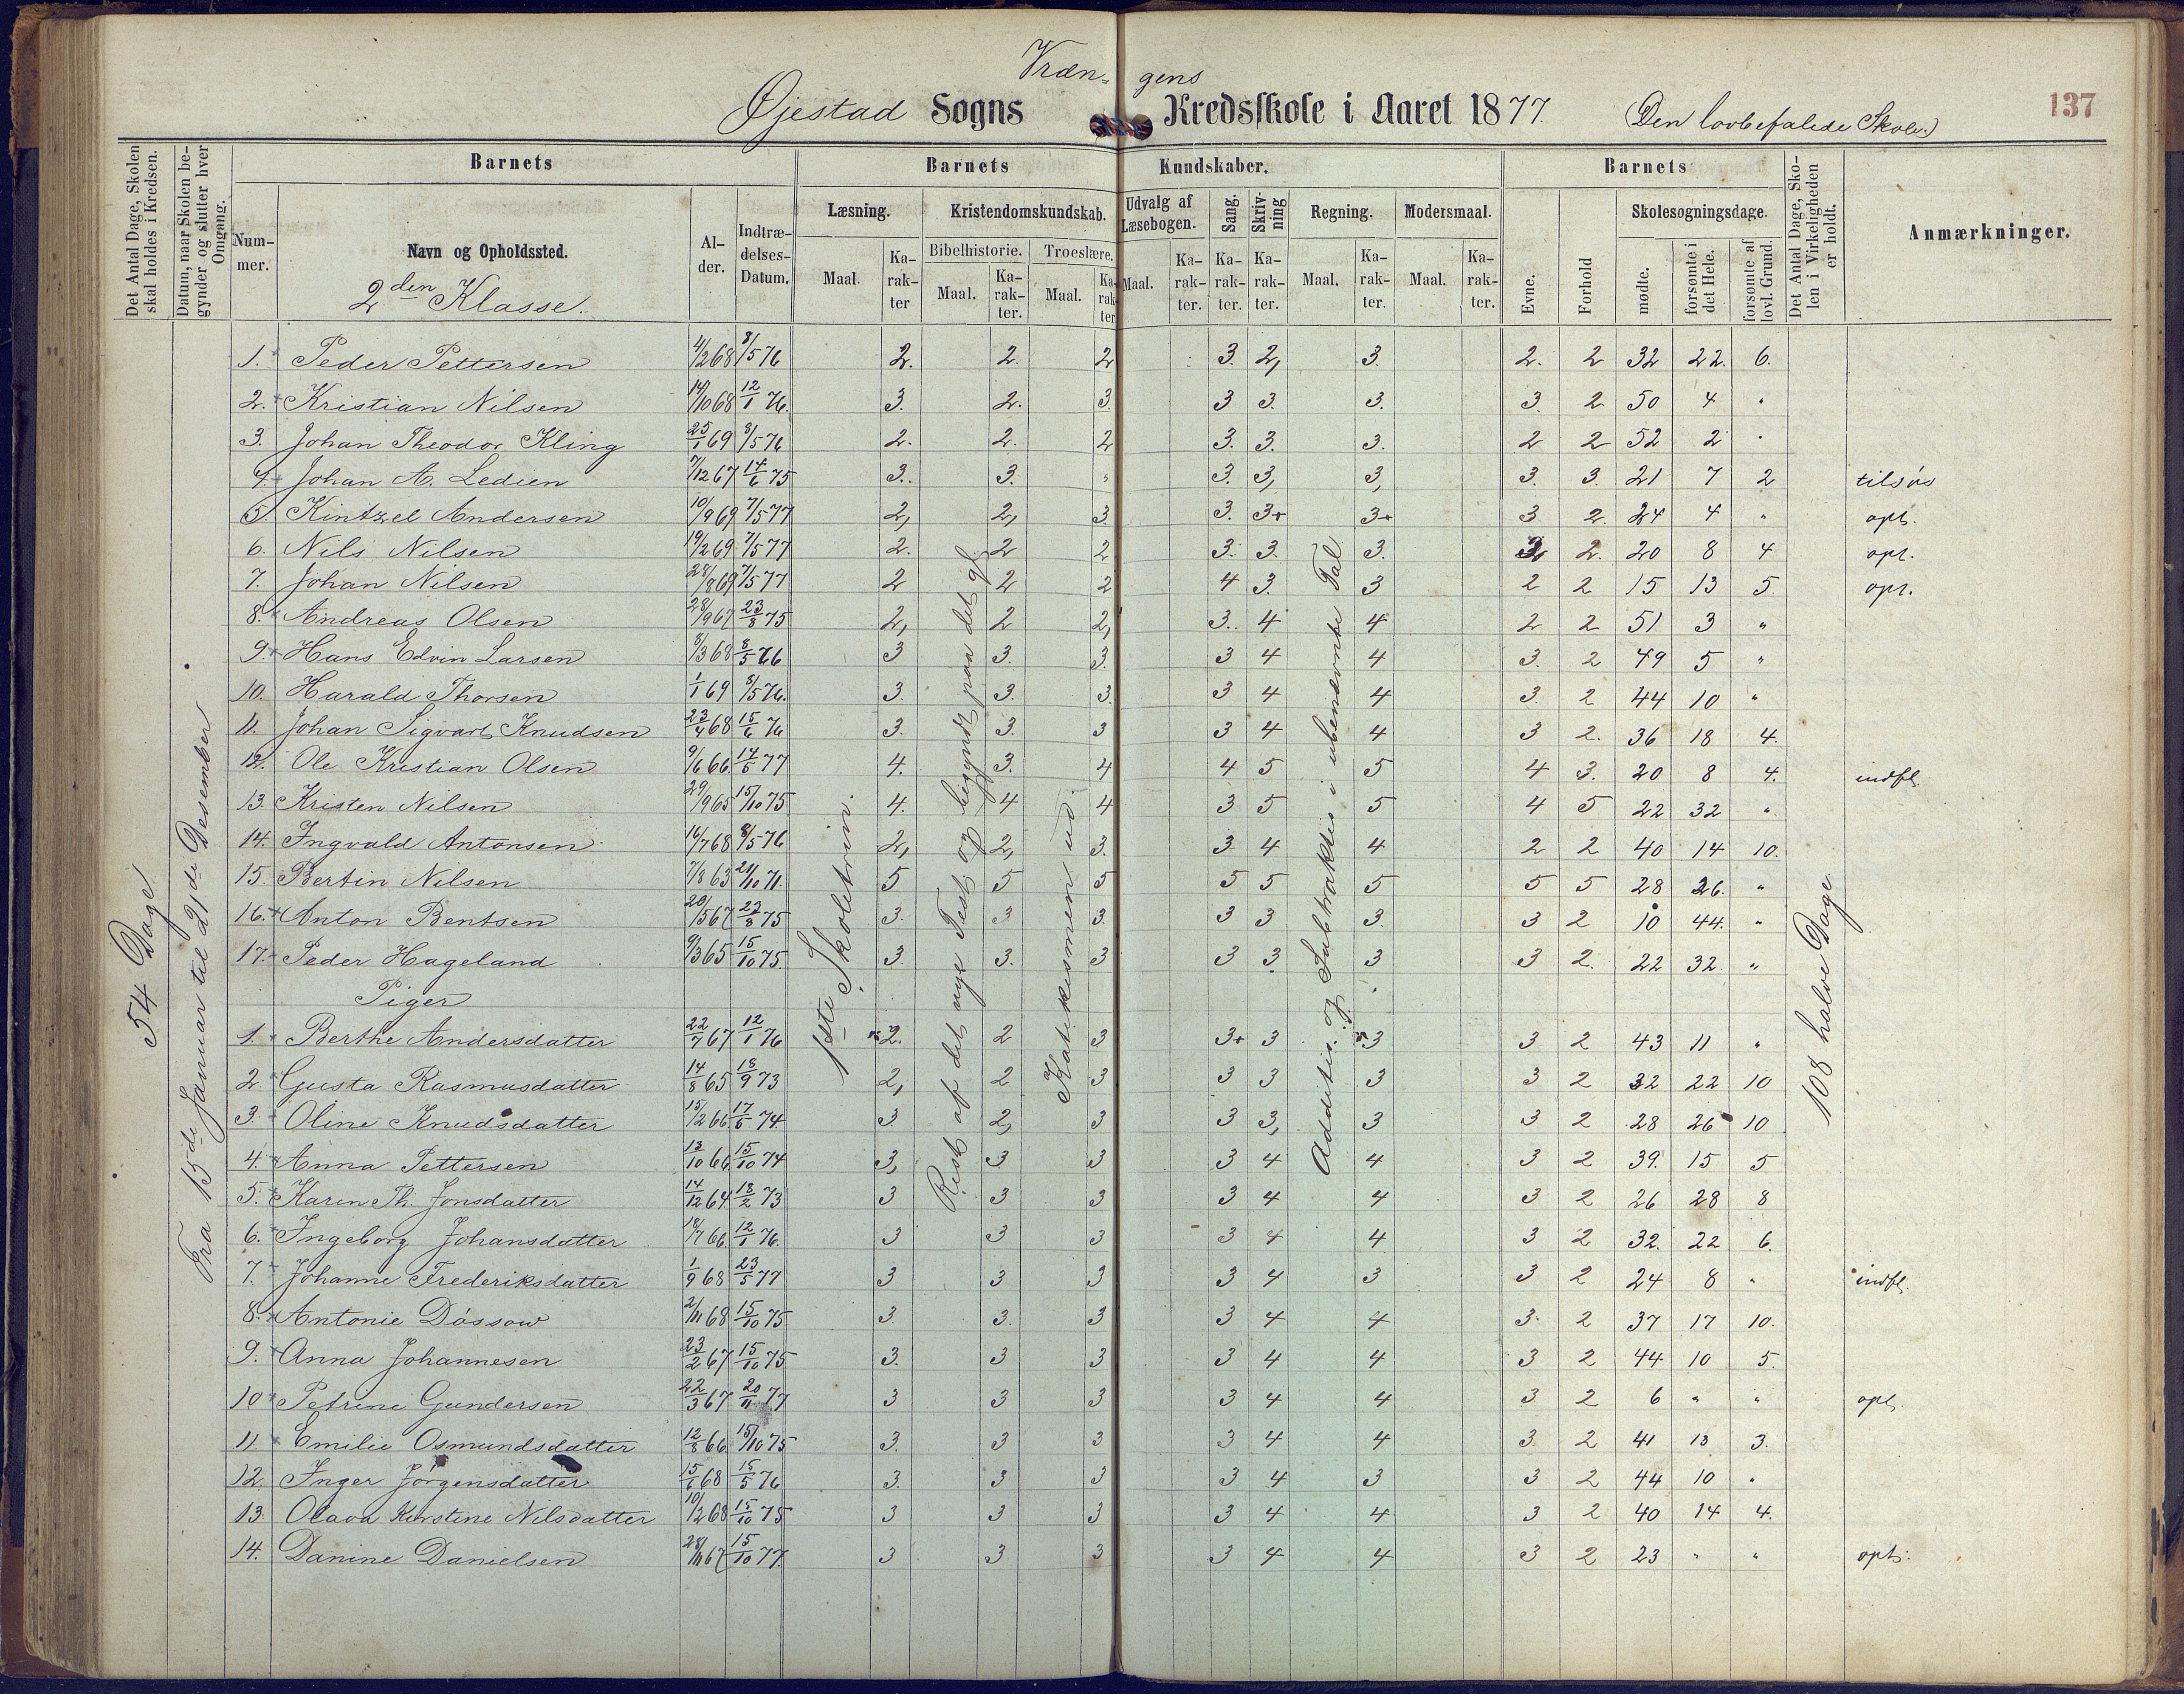 Vræn= gens
Øjestad Sogns Kredsskole i Aaret 1877. (Den lovbefalede Skole.) 137
Det Antal Dage, Skolen skal holdes i Kredsen.
Datum, naar Skolen begynder og slutter hver Omgang.
Barnets
Barnets Kundskaber.
Barnets
Det Antal Dage, Skolen i Virkeligheden er holdt.
Anmærkninger.
Nummer.
Navn og Opholdssted.
2den Klasse.
Alder.
Indtrædelses-Datum.
Læsning.
Kristendomskundskab.
Udvalg af Læsebogen.
Sang.
Skrivning
Regning.
Modersmaal.
Evne.
Forhold
Skolesøgningsdage.
Bibelhistorie.
Troeslære.
Maal. Karakter Maal. Karakter. Maal. Karakter Maal. Karakter. Karakter. Karakter. Maal. Karakter. Maal. Karakter.
mødte. forsømte i det Hele. forsømte af lovl. Grund.
54 Dage
Fra 15de Januar til 21de Desember
1ste Skoletrin.
Rest af det nye Test. og begyndt paa det gl.
Katekismen ud.
Addition og Subtraktion i ubenævnte Tal.
108 halve Dage.
1. Peder Pettersen 4/2 68 8/5 76 2. 2. 2 3. 2, 3. 2. 2 32 22. 6.
2. Kristian Nilsen 14/10 68 12/1 76. 3. 2. 3. 3 3. 3. 3. 2 50 4 "
3. Johan Theodor Kling 25/1 69 8/5 76 2. 2. 2 3. 3. 3. 2 2 52 2 "
4. Johan A. Ledien 7/12 67 14/6 75 3. 3. " 3. 3, 3, 3. 3. 21 7 2 tilsøs
5. Kintzel Andersen 10/9 69 7/5 77 2, 2, 3. 3. 3+ 3+ 3 2. 24 4 " opt.
6. Nils Nilsen 19/2 69 7/5 77 2. 2 2 3. 3. 3. 2 2. 20 8 4 opt.
7. Johan Nilsen 28/8 69 7/5 77 2 2 2 4 3. 3 2 2 15 13 5 opt.
8. Andreas Olsen 28/9 67 23/8 75 2, 2 2, 3. 4 4 2 2 51 3 "
9. Hans Edvin Larsen 8/3 68 8/5 76 3 3. 3. 3 4 4 3. 2 49 5 "
10. Harald Thorsen 1/1 69 8/5 76. 3. 3. 3. 3 4 4 3. 2 44 10 "
11. Johan Sigvart Knudsen 23/4 68 15/6 76 3. 3. 3 3 4 4 3 2. 36 18 4.
12. Ole Kristian Olsen 9/6 66. 14/5 77 4. 3. 4 4 5 5 4 3. 20 8 4. indfl.
13. Kristen Nilsen 29/9 65 15/10 75 4. 4 4 3 5 5 4 5 22 32 "
14. Ingvald Antonsen 16/7 68 8/5 76 2, 2, 3. 3 4 4 2 2 40 14 10.
15. Bertin Nilsen 7/8 63 21/10 71. 5 5 5 5 5 5 5 5 28 26. "
16. Anton Bentsen 20/5 67 23/8 75 3. 3 3. 3 3 3. 3 2 10 44. "
17. Peder Hageland 9/3 65 15/10 75. 3 3. 3 3 3 3 3 2. 22 32. "
Piger
1. Berthe Andersdatter 22/7 67 12/1 76 2. 2 3 3+ 3 3 3 2 43 11 "
2. Gusta Rasmusdatter 14/8 65 18/9 73 2, 2 3 3 3 3 3 2 32 22 10
3. Oline Knudsdatter 15/2 66. 17/5 74 3. 2, 3 3 3, 3 3 2 28 26 10
4. Anna Pettersen 13/10 66. 15/10 74 3, 3 3 3 4 4 3 2 39. 15 5
5. Karen Th. Jonsdatter 14/12 64. 18/2 73 3 3 3 3 4 4 3 2 26 28 8
6. Ingeborg Johansdatter 18/7 66. 12/1 76. 3 3 3 3 4 4 3 2 32. 22 6.
7. Johanne Frederiksdatter 1/9 68 23/5 77 3 3 3 3 4 3 3 2 24 8 " indfl.
8. Antonie Døssow 2/11 68 15/10 75 3. 3. 3 3 4 4 3. 2 37 17 10.
9. Anna Johannesen 23/2 67 15/10 75 3. 3 3 3 4 4 3 2 44 10 5.
10 Petrine Gundersen 22/3 67 20/11 77 3 3 3 3 4 4 3 2 6 " " opt.
11. Emilie Osmundsdatter 12/8 66. 15/10 75 3. 3 3 3 4 4 3 2 41 13 3.
12. Inger Jørgensdatter 15/6 68 15/5 76 3. 3 3 3 4 3 3 2 44 10 "
13. Olava Kirstine Nilsdatter 10/12 68 15/10 75 3 3 3 3 4 4 3 2 40 14 4.
14. Danine Danielsen 28/11 67 15/10 77. 3 3 3 3 4 4 3 2 23 " " opt.